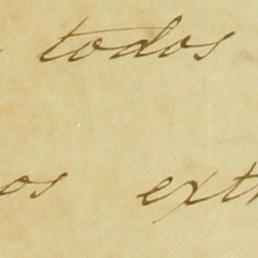 todos
os ext